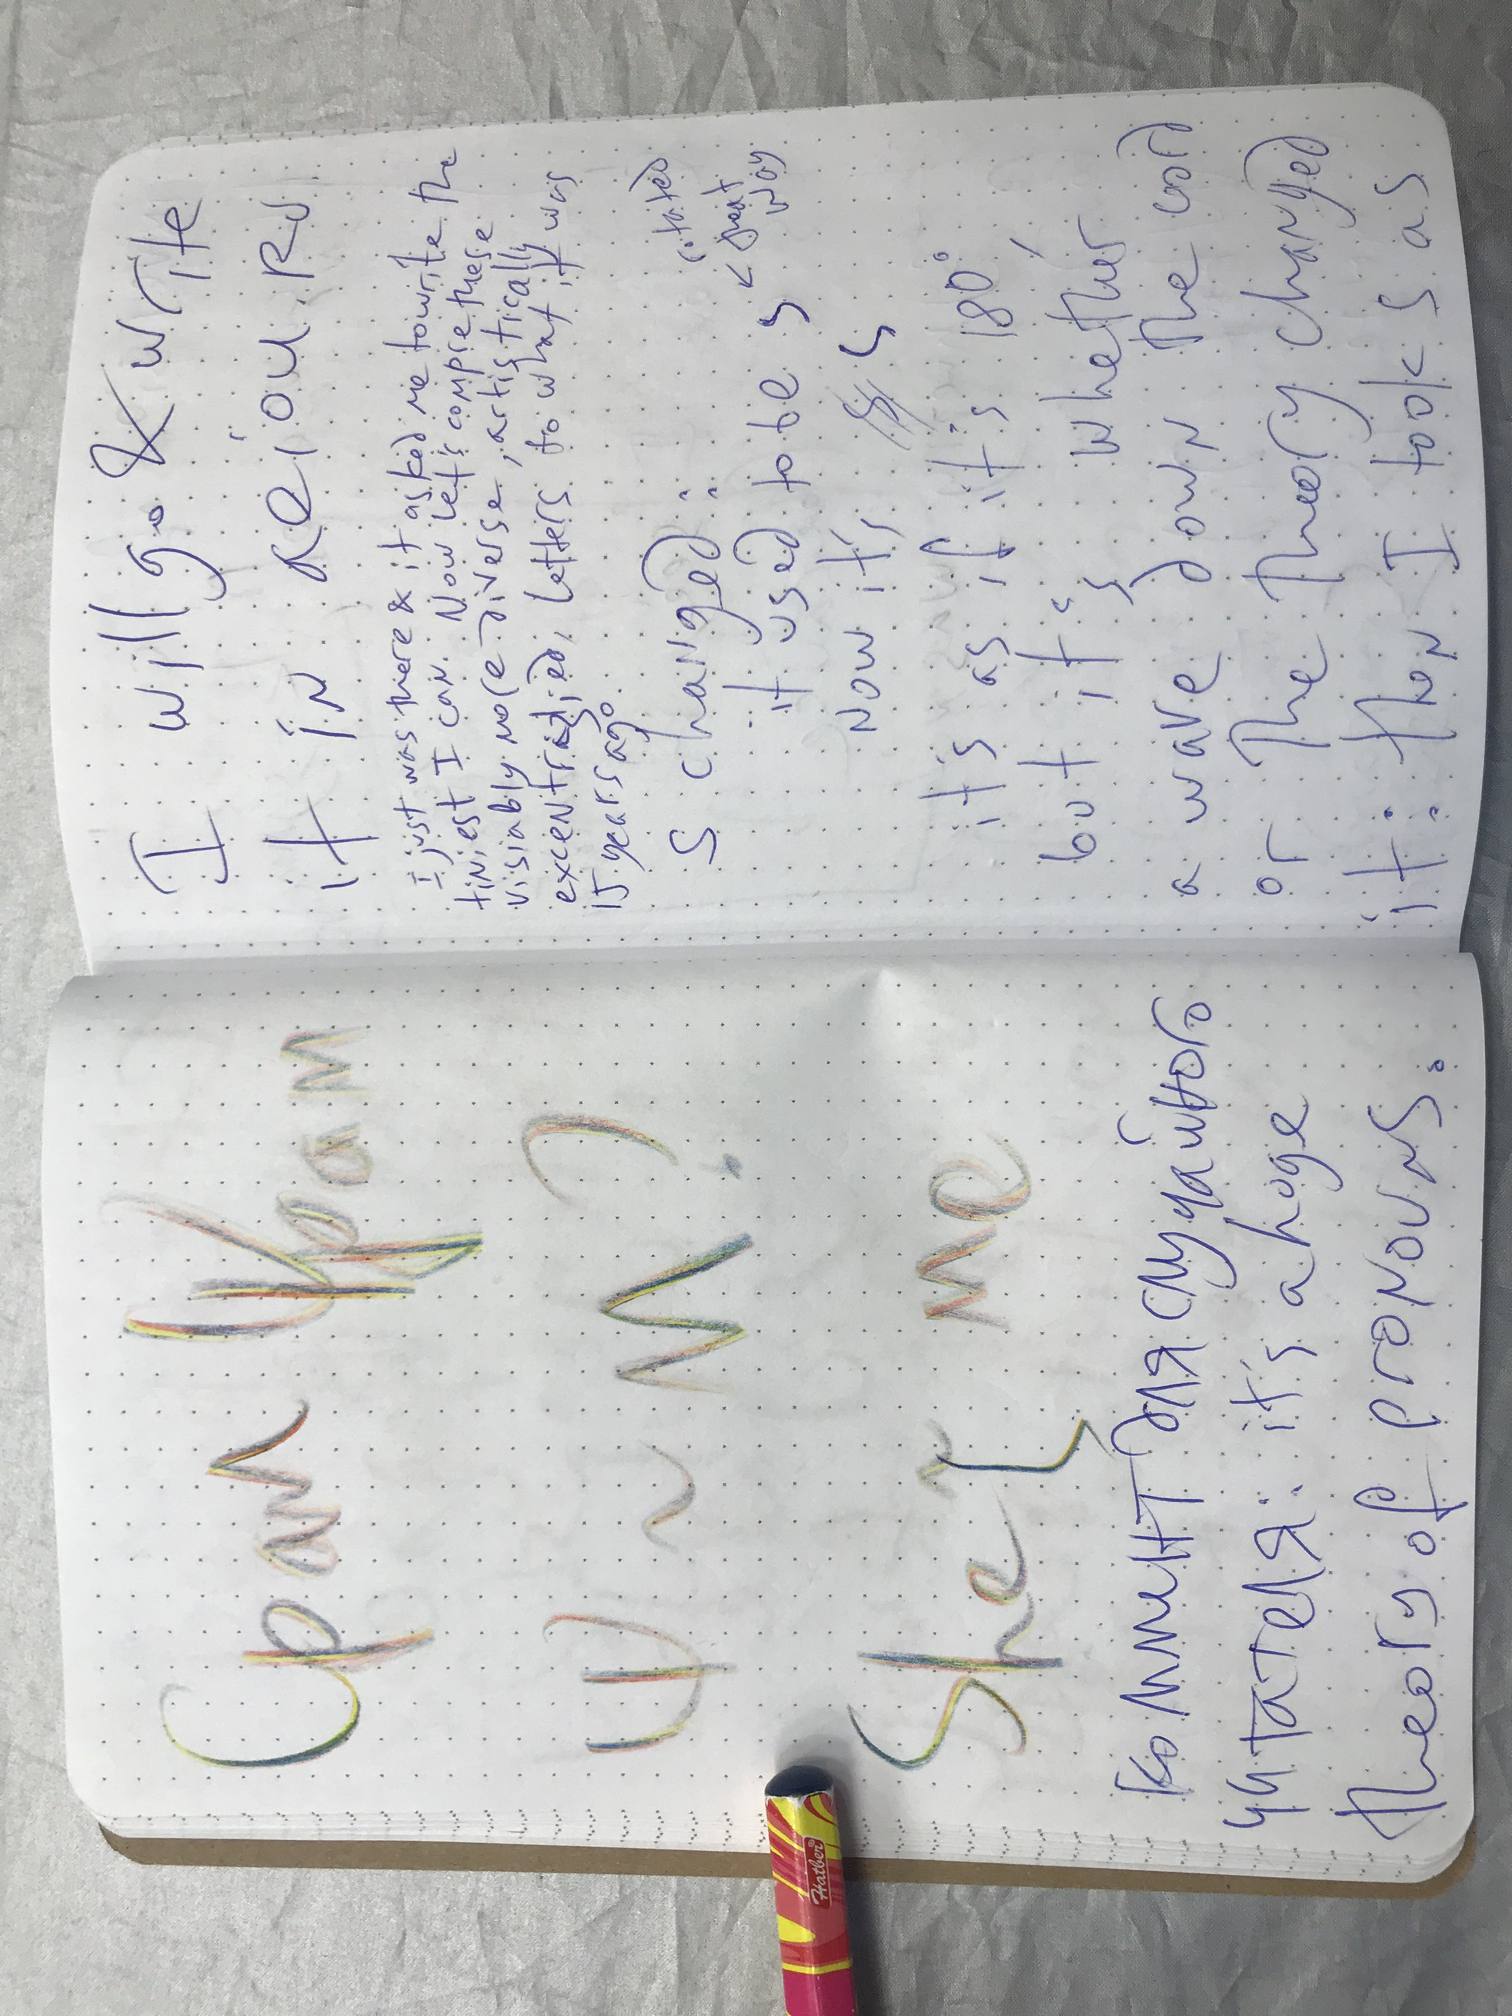 Срам Храм
She me
Коммит для случайного
читателя: it's a huge
theory of pronouns.
Hatber
I will go & write
it in aeiou.ru
I just was there & it asked me to write the
tiniest I can. Now let's compre these
visiably more diverse, artistically
excentrified, letters to what it was
15 years ago
s changed:
it used to be s
Now it's s
< great way
it's as if it's 180°
but it's whether
a wave down the cord
or the theory changed
it: then I took s as